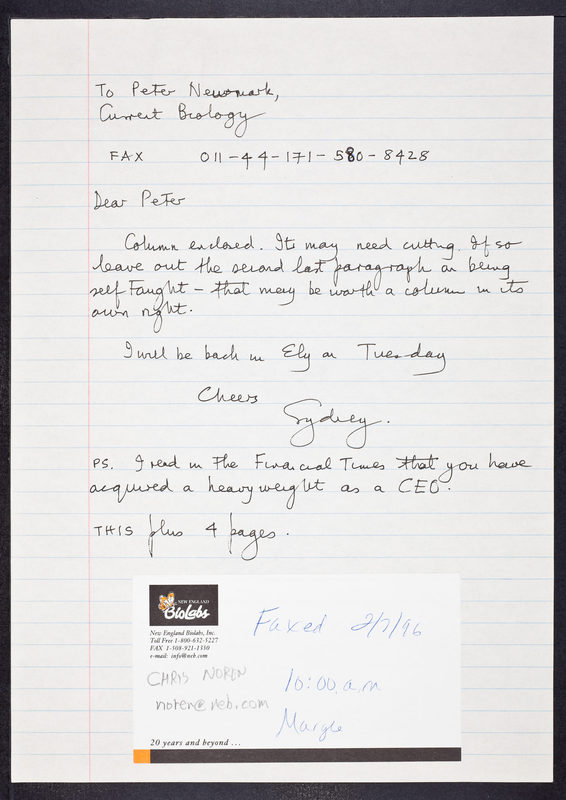 To Peter Newmark,
Current Biology
FAX 011-44-171-580-8428
Dear Peter
Column enclosed. Its may need cutting. If so
leave out the second last paragraph on being
self Taught - that may be worth a column in its
own right.
I will be back in Ely on Tuesday
Cheers
Sydney.
PS. I read in The Financial Times that you have
acquired a heavyweight as a CEO.
THIS plus 4 pages.
NEW ENGLAND
BioLabs
New England Biolabs, Inc.
Toll Free 1-800-632-5227
FAX 1-508-921-1350
e-mail: info@neb.com
CHRIS NOREN
noren@neb.com
Faxed 2/7/96
10:00 a.m
Margie
20 years and beyond ...